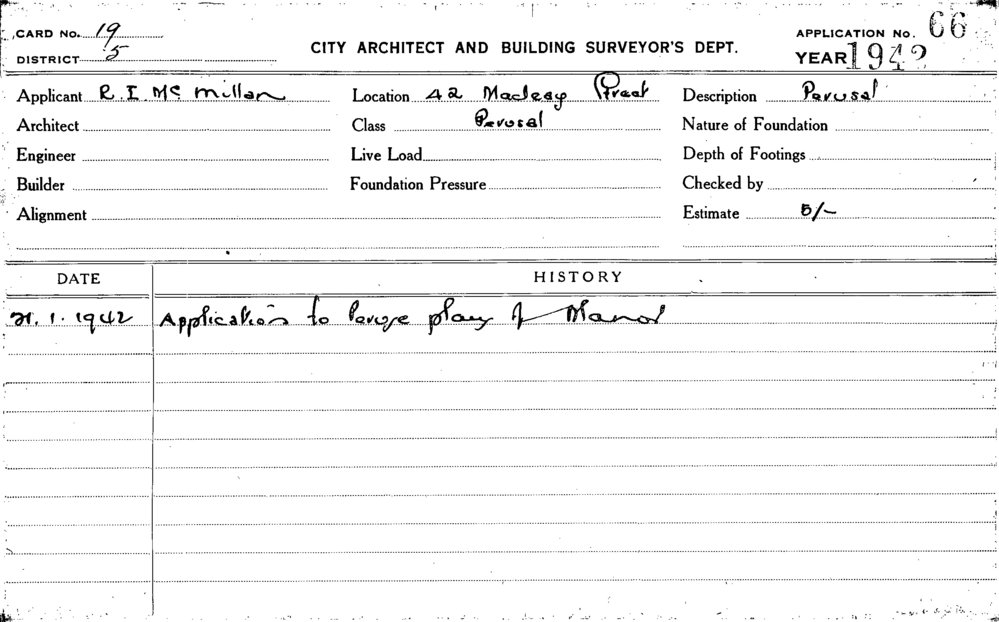 CARD No. 19
DISTRICT 5
CITY ARCHITECT AND BUILDING SURVEYOR'S DEPT.
APPLICATION No. 66
YEAR 1942
Applicant R. I. Mc Millan
Location 42 Macleay Street
Description Perusal
Architect
Class Perusal
Nature of Foundation
Engineer
Live Load
Depth of Footings
Builder
Foundation Pressure
Checked by
Alignment
Estimate 5/-
DATE
HISTORY
21.1.1942 Application to Peruse plans of Manor